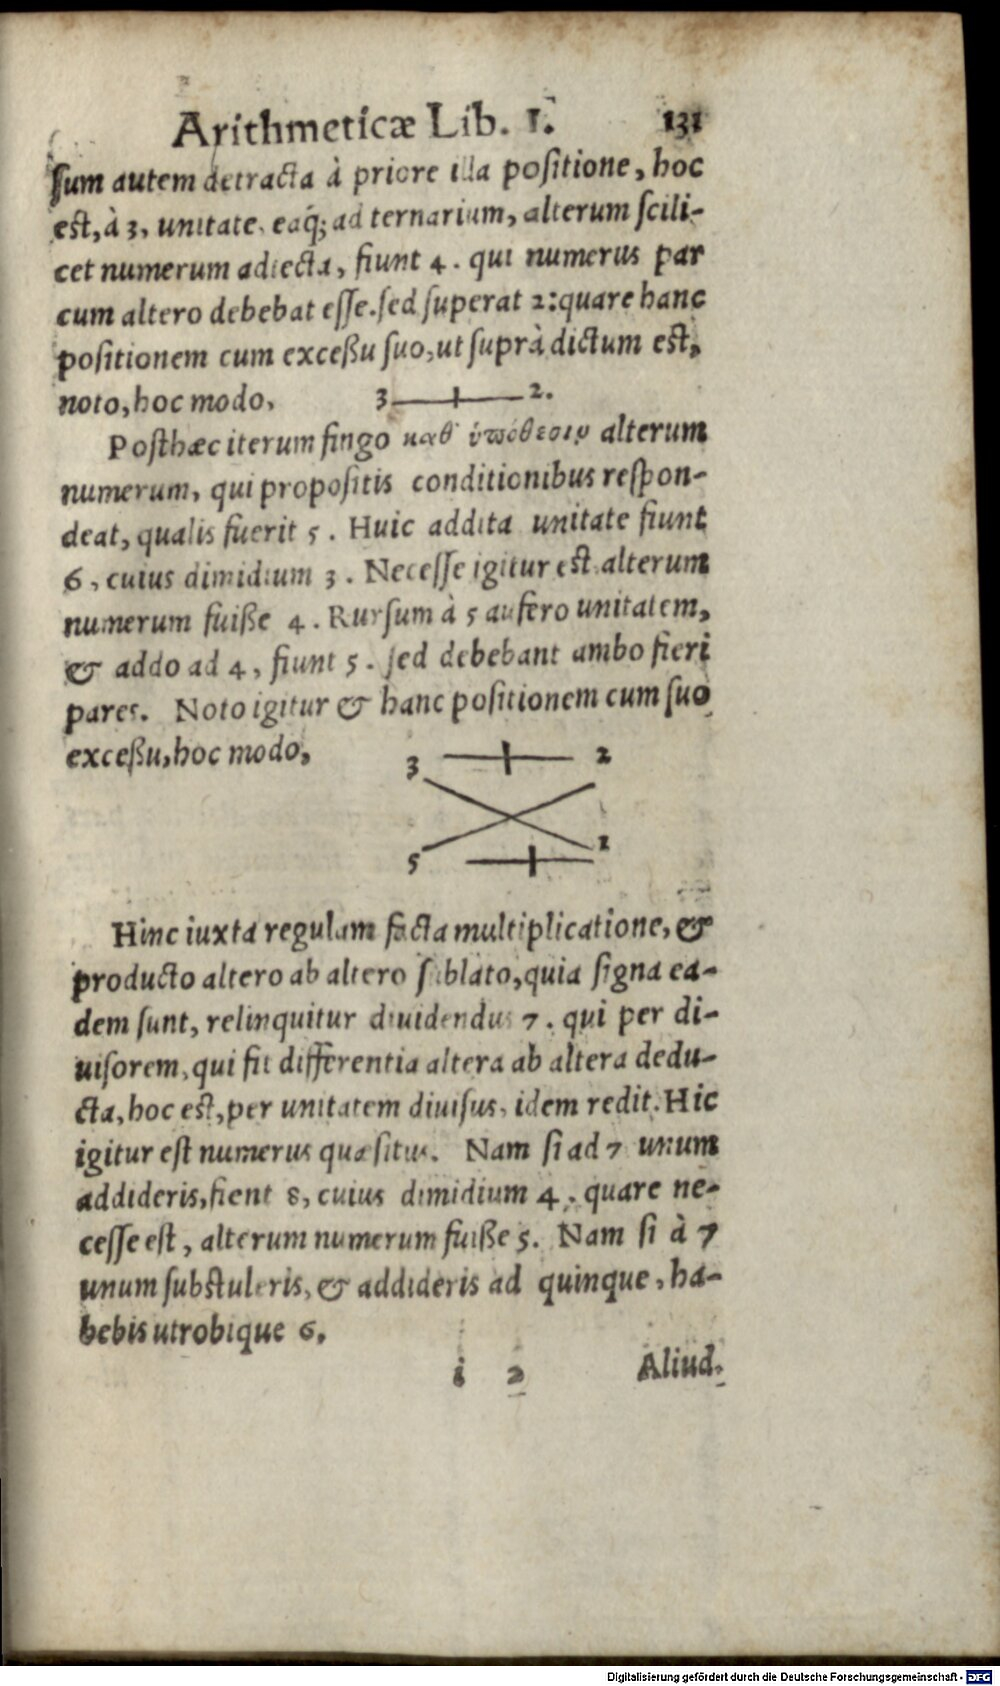 Arithmeticæ Lib. 1. 131
ſum autem detracta à priore illa poſitione, hoc
eſt, à 3, unitate, eaq́; ad ternarium, alterum ſcili-
cet numerum adiecta, fiunt 4. qui numerus par
cum altero debebat eſſe. ſed ſuperat 2: quare hanc
poſitionem cum exceßu ſuo, ut ſuprà dictum eſt,
noto, hoc modo, 3 2.
Poſthæc iterum fingo καθ' ὑπόθεσιν alterum
numerum, qui propoſitis conditionibus reſpon-
deat, qualis fuerit 5. Huic addita unitate fiunt
6, cuius dimidium 3. Neceſſe igitur eſt alterum
numerum fuiße 4. Rurſum à 5 aufero unitatem,
& addo ad 4, fiunt 5. ſed debebant ambo fieri
pares. Noto igitur & hanc poſitionem cum ſuo
exceßu, hoc modo,
3 2
5 1
Hinc iuxta regulam facta multiplicatione, &
producto altero ab altero ſublato, quia ſigna ea-
dem ſunt, relinquitur diuidendus 7. qui per di-
uiſorem, qui fit differentia altera ab altera dedu-
cta, hoc eſt, per unitatem diuiſus, idem redit. Hic
igitur eſt numerus quæſitus. Nam ſi ad 7 unum
addideris, fient 8, cuius dimidium 4, quare ne-
ceſſe eſt, alterum numerum fuiße 5. Nam ſi à 7
unum ſubſtuleris, & addideris ad quinque, ha-
bebis utrobique 6.
i 2 Aliud.
Digitalisierung gefördert durch die Deutsche Forschungsgemeinschaft - DFG